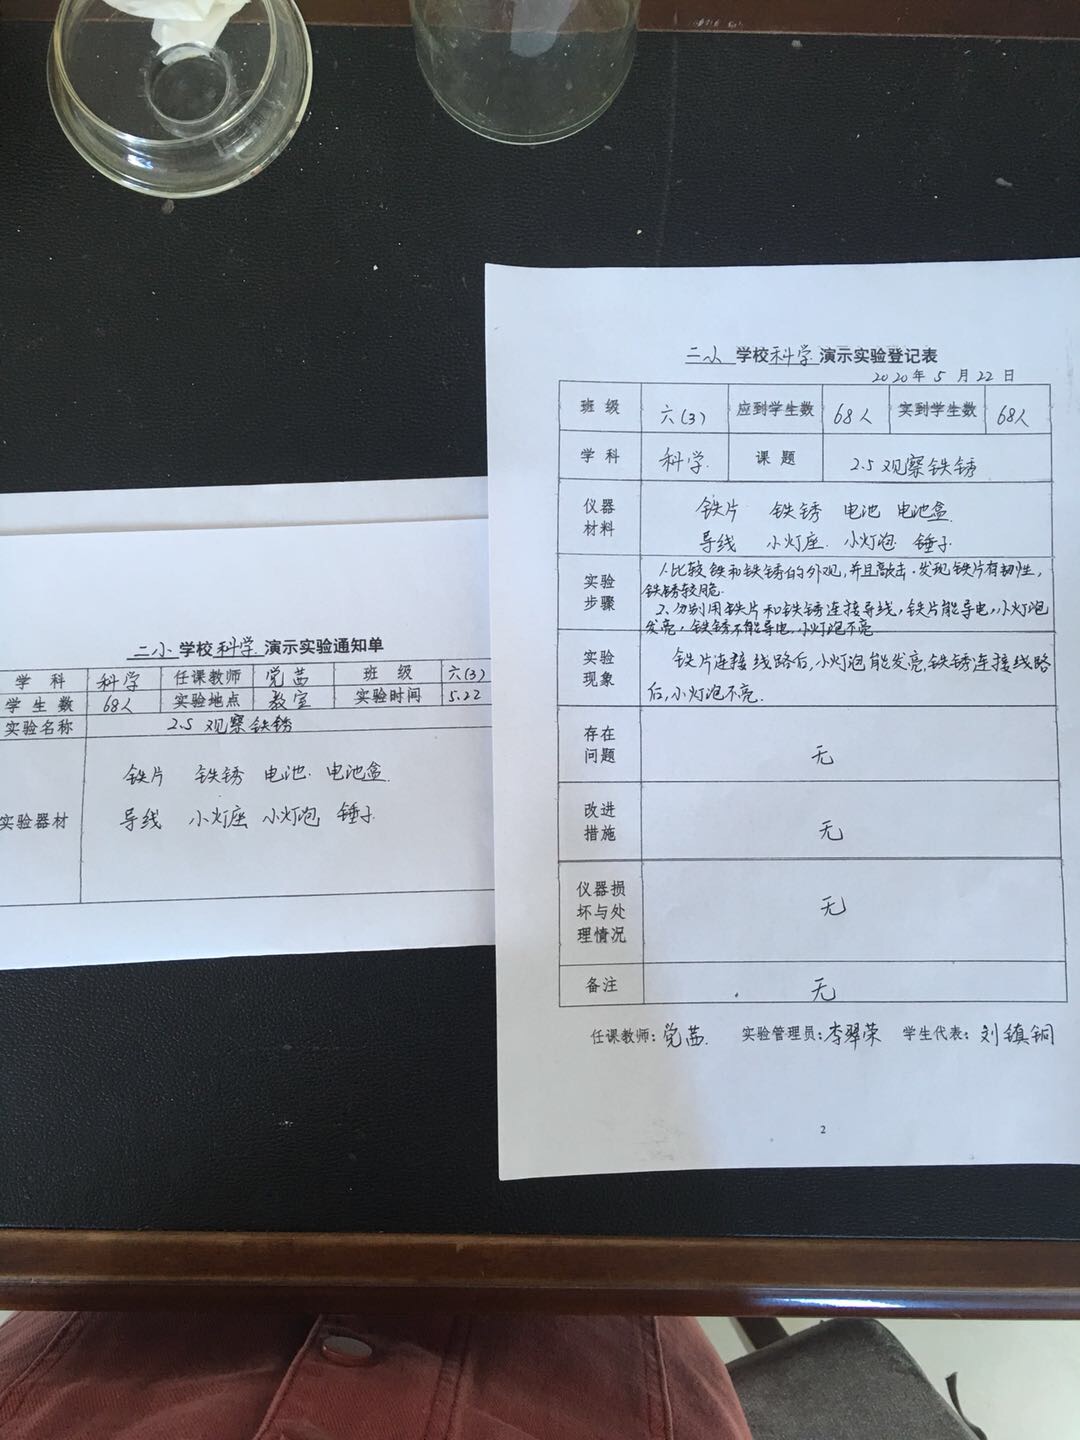 二小 学校 科学 演示实验通知单
学 科 科学 任课教师 党茜 班 级 六(3)
学 生 数 68人 实验地点 教室 实验时间 5.22
实验名称 2.5 观察铁锈
铁片 铁锈 电池 电池盒
实验器材 导线 小灯座 小灯泡 锤子
二小 学校 科学 演示实验登记表
2020 年 5 月 22 日
班 级 六(3) 应到学生数 68人 实到学生数 68人
学 科 科学 课 题 2.5 观察铁锈
仪器 铁片 铁锈 电池 电池盒
材料 导线 小灯座 小灯泡 锤子
实验
步骤
1.比较铁和铁锈的外观,并且敲击.发现铁片有韧性,
铁锈较脆.
2.分别用铁片和铁锈连接导线,铁片能导电,小灯泡
发亮,铁锈不能导电,小灯泡不亮
实验
现象
铁片连接线路后,小灯泡能发亮,铁锈连接线路
后,小灯泡不亮.
存在
问题 无
改进
措施 无
仪器损
坏与处
理情况 无
备注 无
任课教师:党茜. 实验管理员:李翠荣 学生代表:刘镇铜
2